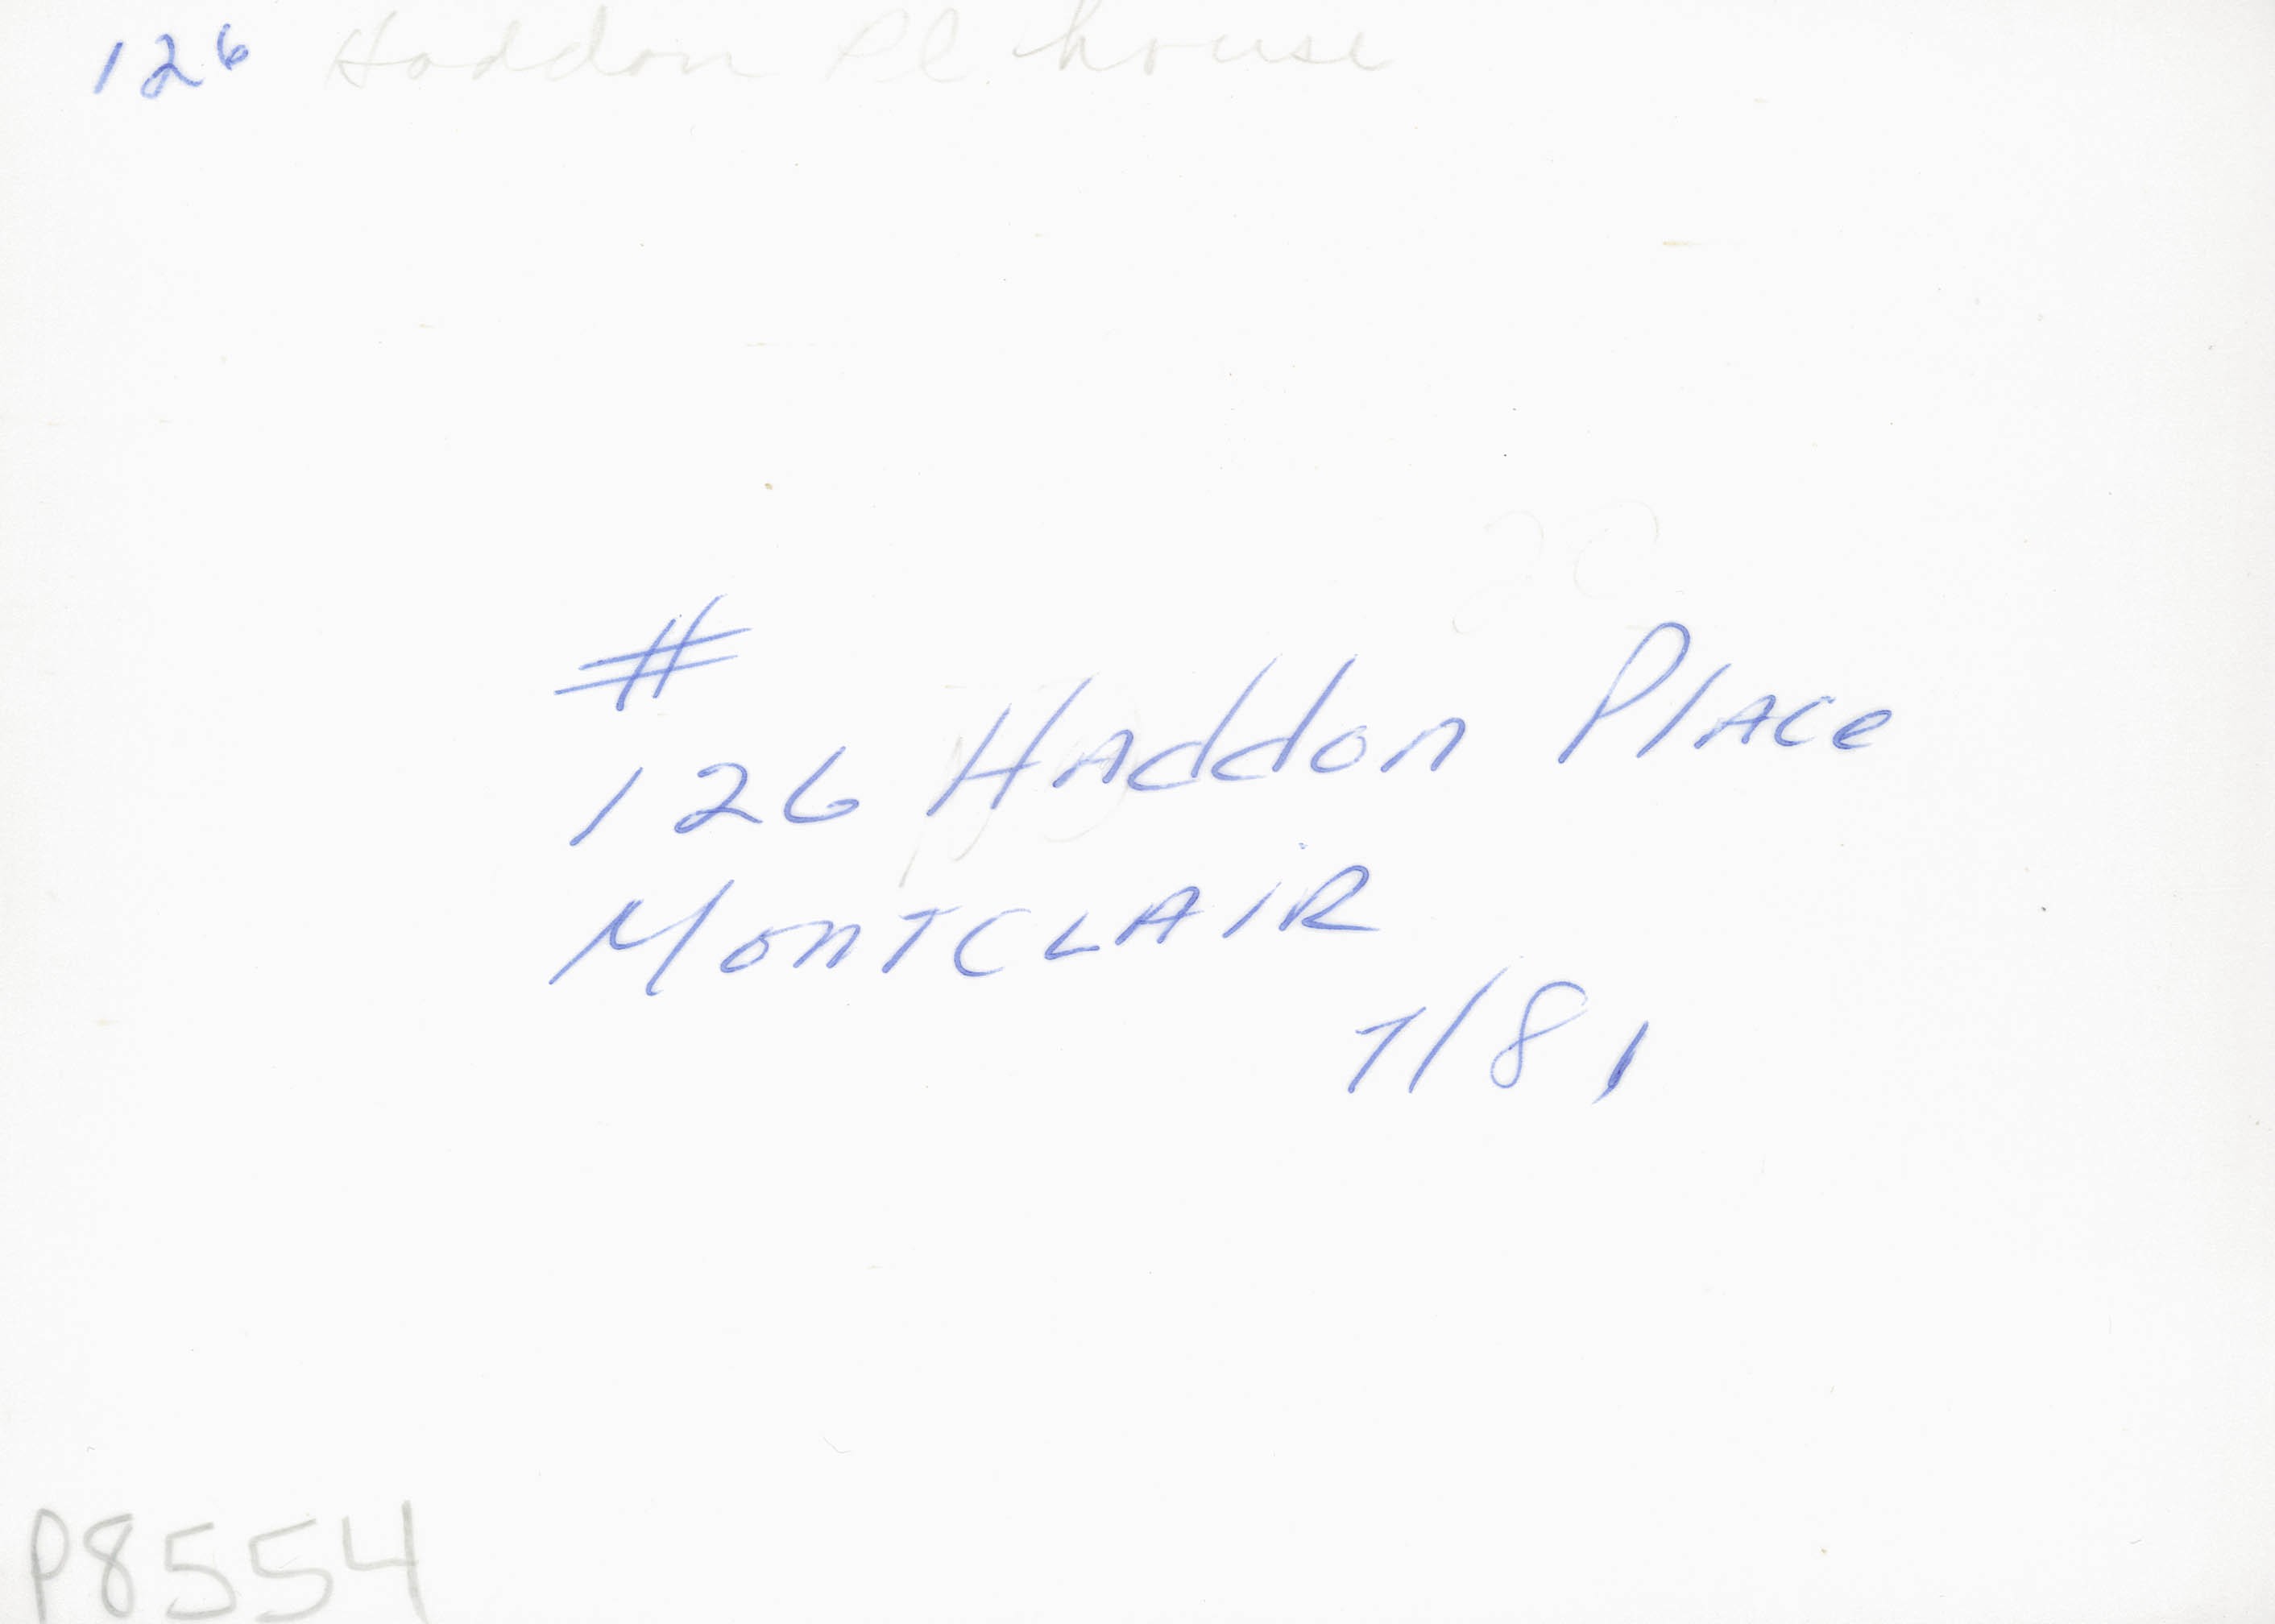 126 Haddon Pl house
#
126 Haddon Place
Montclair
7/81
P8554